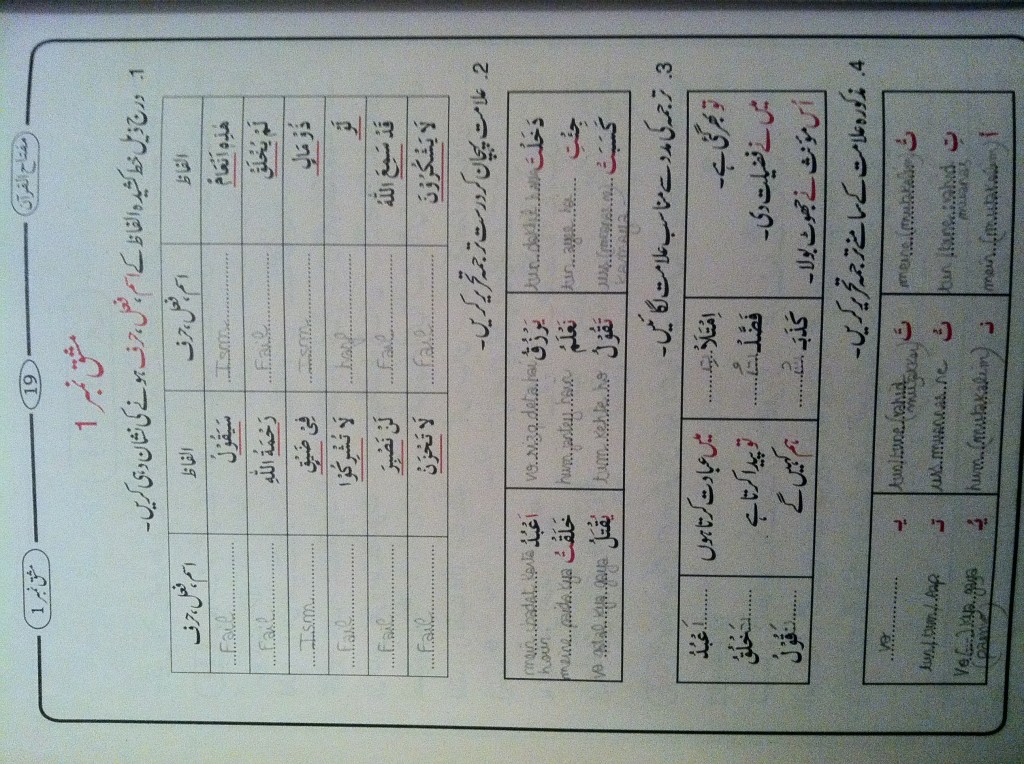 مفتاح القرآن 19 مشق نمبر 1
مشق نمبر 1
1. درج ذیل خط کشیدہ الفاظ کے اسم، فعل، حرف ہونے کی نشان دہی کریں۔
الفاظ اسم، فعل، حرف الفاظ اسم، فعل، حرف
هٰذِهٖ اَنْعَامٌ Ism سَيَقُوْلُ Fail
لَمْ يُخْلَقْ Fail رَحْمَةَ اللّٰهِ Fail
ذُوْ مَالٍ Ism فِيْ ضَيْقٍ Ism
لَوْ harf لَا تُشْرِكُوْا Fail
قَدْ سَمِعَ اللّٰهُ Fail لَنْ نَصْبِرَ Fail
لَا يَشْكُرُوْنَ Fail لَا تَحْزَنْ Fail
2. علامت پہچان کر درست ترجمہ تحریر کریں۔
دَخَلْتَ tun dakhil يَرْزُقُ vo rizq deta hai اَعْبُدُ mein ibadat karta houn
جِئْتَ tun aya نَعْلَمُ hum jantey hain خَلَقْتُ meine paida kiya
كَسَبَتْ us تَقُوْلُ tum kehte ho يُقْتَلُ vo qatal kiya gaya
3. ترجمہ کی مدد سے مناسب علامت لگائیں۔
تو بھر گئی ہے۔ میں عبادت کرتا ہوں اَعْبُدُ
میں نے فضیلت دی۔ فَضَّلْتُ تو پیدا کرتا ہے تَخْلُقُ
اُس مؤنث نے جھوٹ بولا۔ كَذَبَتْ ہم کہیں گے نَقُوْلُ
4. مذکورہ علامت کے سامنے ترجمہ تحریر کریں۔
تُ meine (mutakalim) تَ tun/tune vahid يَـ vo
تِ tun/tune vahid munas تْ us munas ne تَـ tun/tum/aap
اَ mein (mutakalim) نَـ hum (mutakalim) يُـ vo kiya gaya